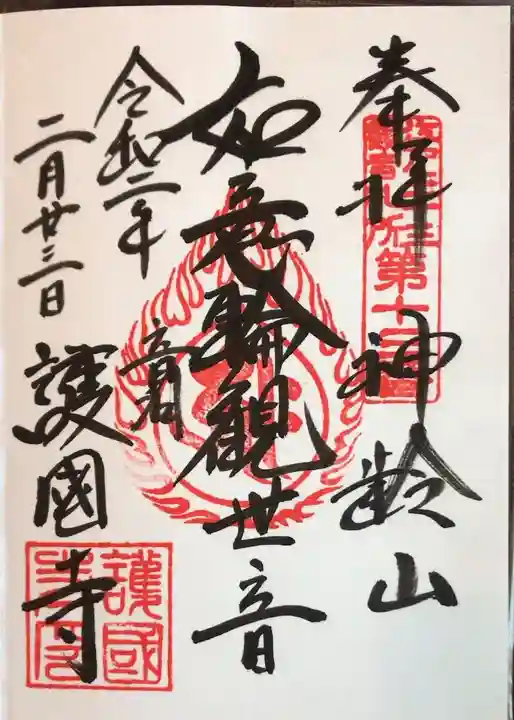 奉拝 神齢山
第十三
如意輪観世音
令和二年
二月廿三日
音羽
護國寺
護國